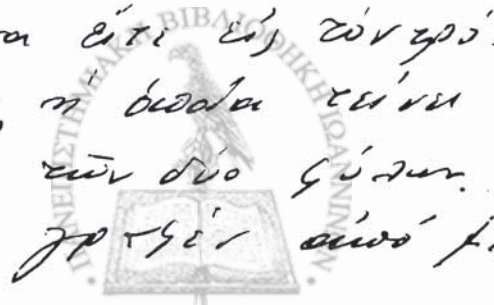 εἴτε εἰς τὸν τρό
ἡ ὁποία τείνει
τῶν δύο φύλων.
ἀπό
ΠΑΝΕΠΙΣΤΗΜΙΑΚΗ ΒΙΒΛΙΟΘΗΚΗ ΙΩΑΝΝΙΝΩΝ